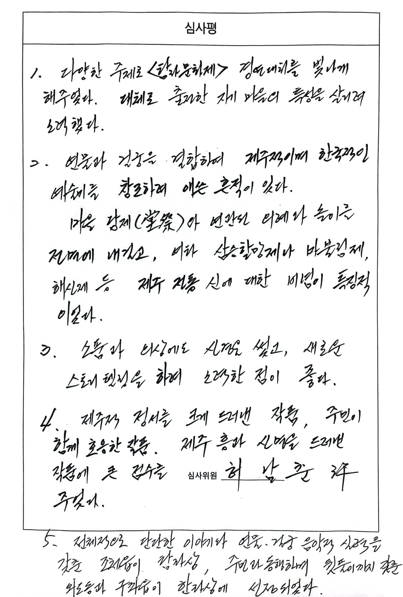 심사평
1. 다양한 주제로 <탐라문화제> 경연대회를 빛나게
해주었다. 대체로 출전한 자기 마을의 특성을 살리려
노력했다.
2. 연물과 걸궁을 결합하여 제주적이며 한국적인
예술를 창조하려 애쓴 흔적이 있다.
마을 당제(堂祭)와 연관된 의례나 놀이를
전면에 내걸고, 영등할망제나 바람올림제,
해신제 등 제주 전통 신에 대한 비념이 특징적
이었다.
3. 소품과 의상에도 신경을 썼고, 새로운
스토리텔링을 하려 노력한 점이 좋다.
4. 제주적 정서를 크게 드러낸 작품, 주민이
함께 호응한 작품. 제주 흥과 신명을 드러낸
작품에 큰 점수를 심사위원 허남춘
주었다.
5. 전체적으로 탄탄한 이야기와 연물·걸궁 음악적 실력을
갖춘 조천읍이 탐라상, 주민과 동행하며 뒷풀이까지 갖춘
외도동과 구좌읍이 한라상에 선정되었다.